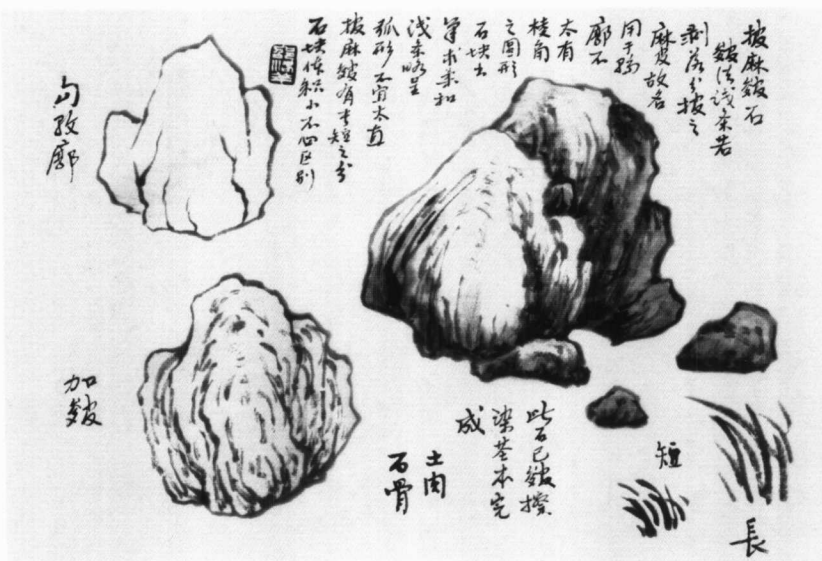 披麻皴石
皴法线条若
剥落分披之
麻皮故名
用于轮
廓不
太有
棱角
之圆形
石块出
笔求柔和
线条略呈
弧形不宜太直
披麻皴有长短之分
石块体积小不必区别
勾轮廓
加皴
此石已皴擦
染基本完
成
土肉
石骨
短
長